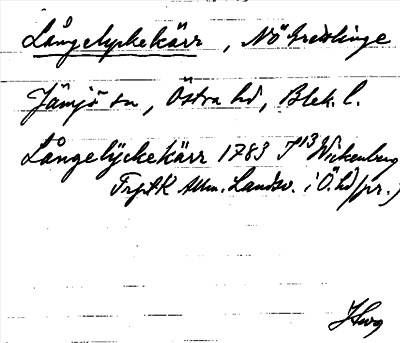 Långelyckekärr, NÖ Bredlinge
Jämjö sn, Östra hd, Blek. l.
Långelyckekärr 1783 J¹³ Wickenberg
Allm. Landsv. i Ö. hd (pr.)